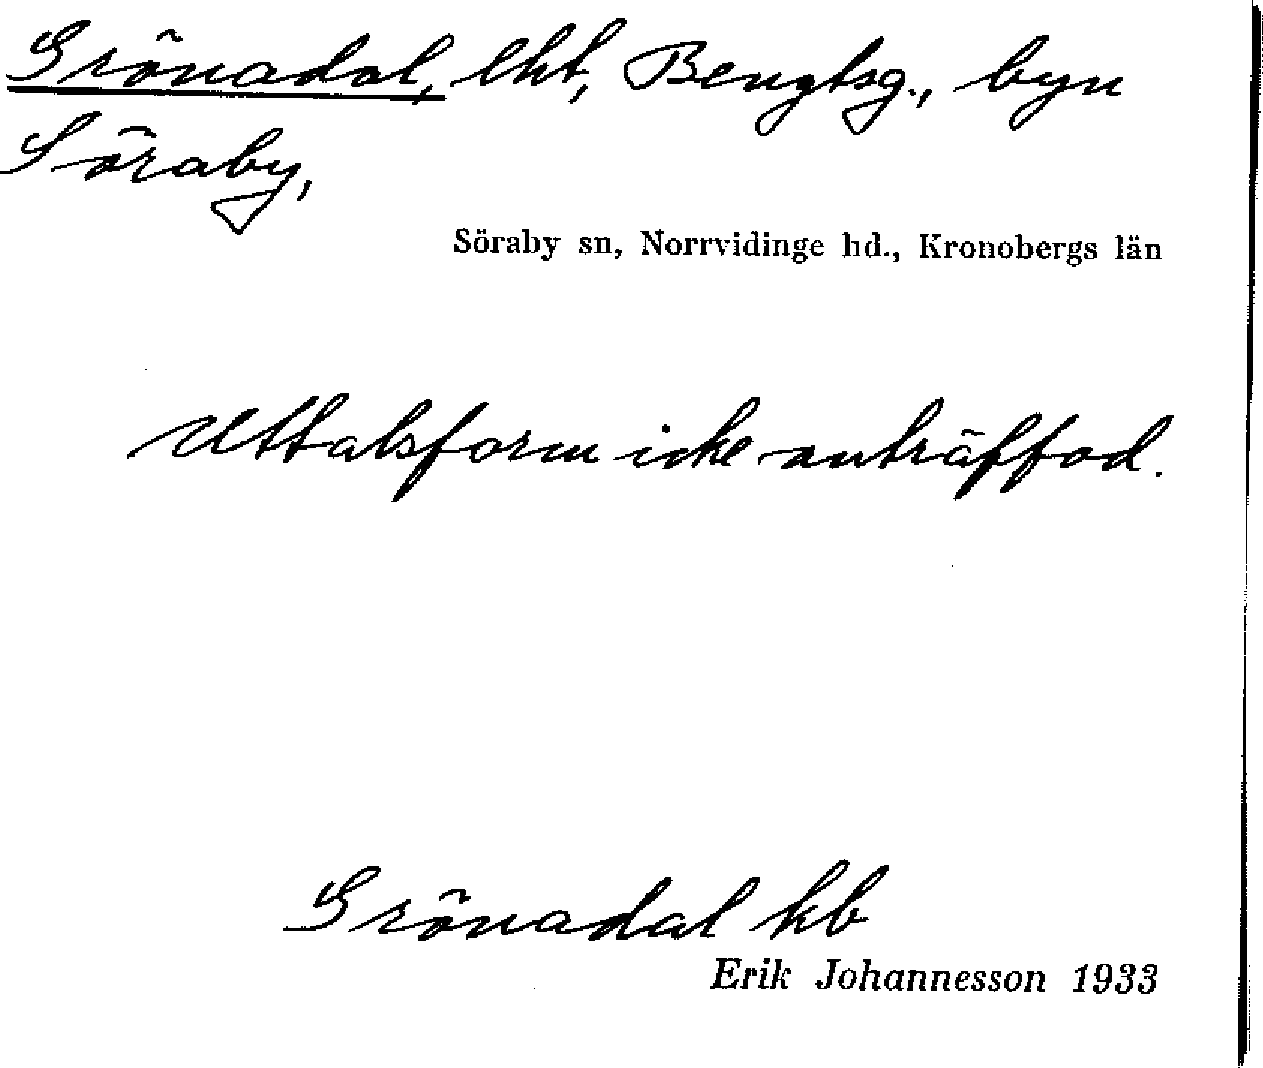 Grönadal, lht, Bengtsg., byn
Söraby,
Söraby sn, Norrvidinge hd., Kronobergs län
Uttalsform icke anträffad.
Grönadal kb
Erik Johannesson 1933